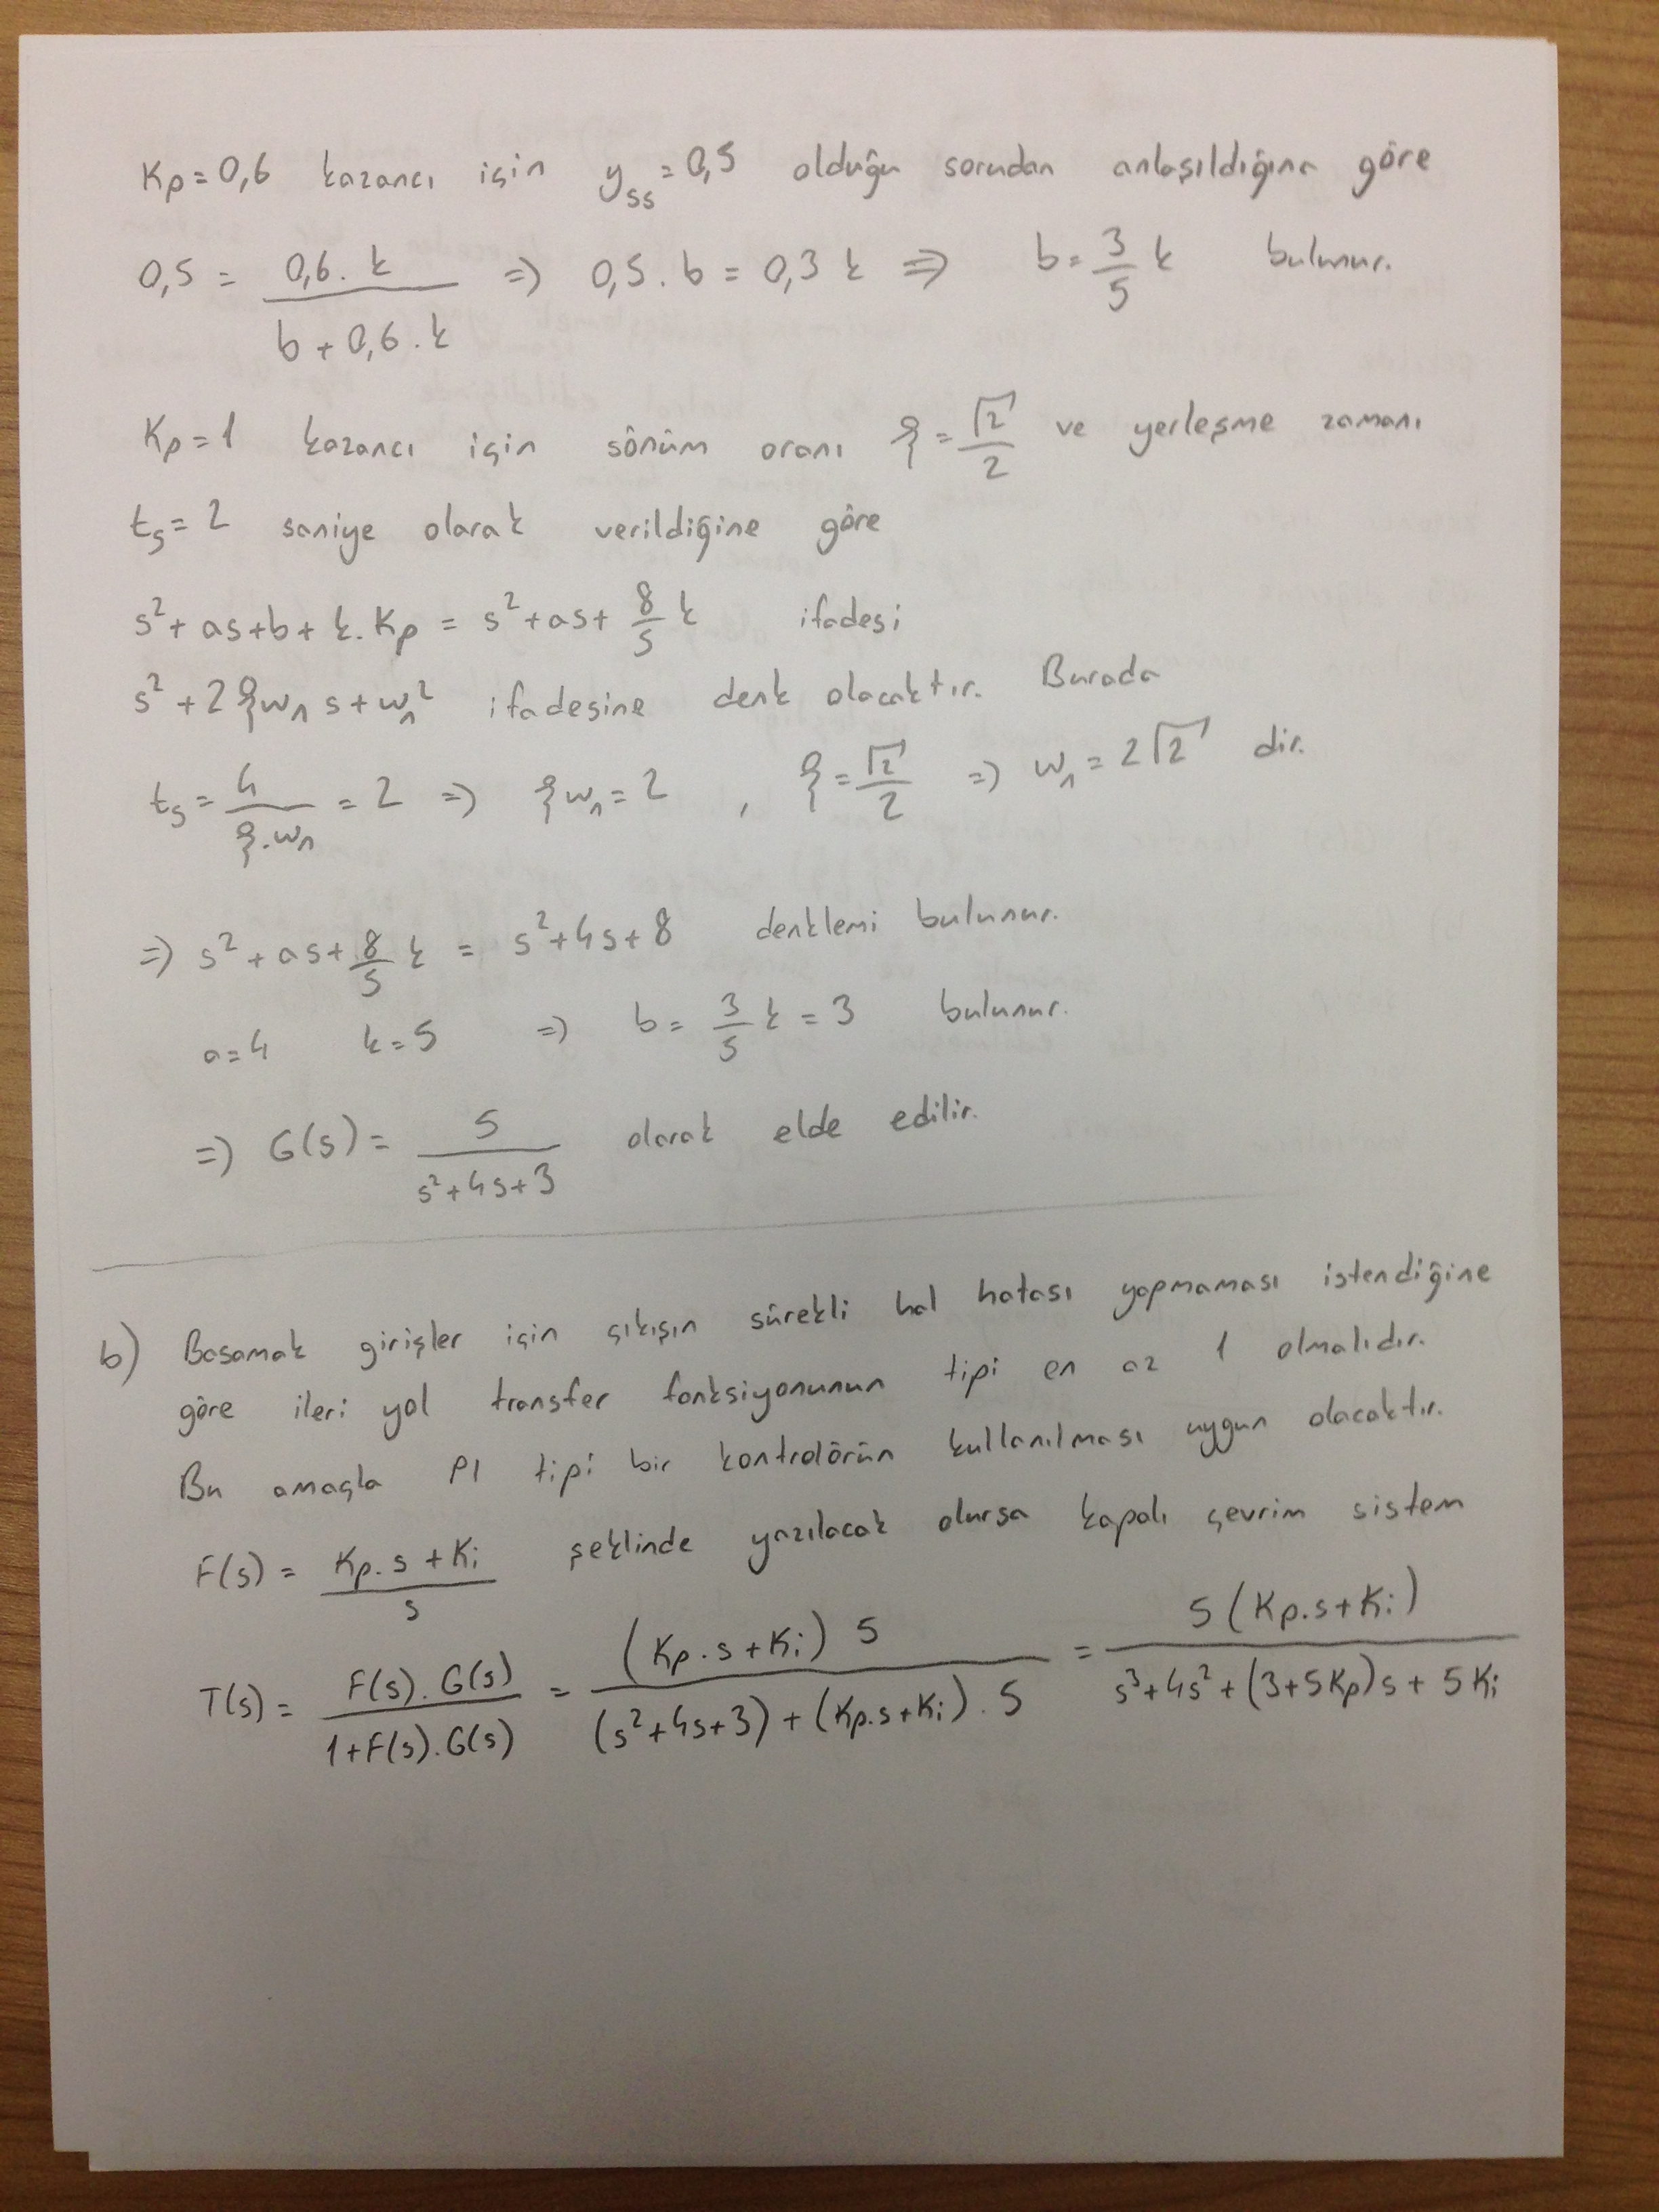 Kp = 0,6 kazancı için yss = 0,5 olduğu sorudan anlaşıldığına göre
0,5 = 0,6.k / (b + 0,6.k) => 0,5.b = 0,3 k => b = 3/5 k bulunur.
Kp = 1 kazancı için sönüm oranı ξ = √2/2 ve yerleşme zamanı
ts = 2 saniye olarak verildiğine göre
s² + as + b + k.Kp = s² + as + 8/5 k ifadesi
s² + 2ξwn s + wn² ifadesine denk olacaktır. Burada
ts = 4/(ξ.wn) = 2 => ξwn = 2 , ξ = √2/2 => wn = 2√2 dir.
=> s² + as + 8/5 k = s² + 4s + 8 denklemi bulunur.
a = 4 k = 5 => b = 3/5 k = 3 bulunur.
=> G(s) = 5/(s² + 4s + 3) olarak elde edilir.
b) Basamak girişler için çıkışın sürekli hal hatası yapmaması istendiğine
göre ileri yol transfer fonksiyonunun tipi en az 1 olmalıdır.
Bu amaçla PI tipi bir kontrolörün kullanılması uygun olacaktır.
F(s) = (Kp.s + Ki)/s şeklinde yazılacak olursa kapalı çevrim sistem
T(s) = F(s).G(s)/(1+F(s).G(s)) = (Kp.s + Ki) 5/((s²+4s+3) + (Kp.s+Ki).5) = 5(Kp.s+Ki)/(s³+4s²+(3+5Kp)s + 5Ki)